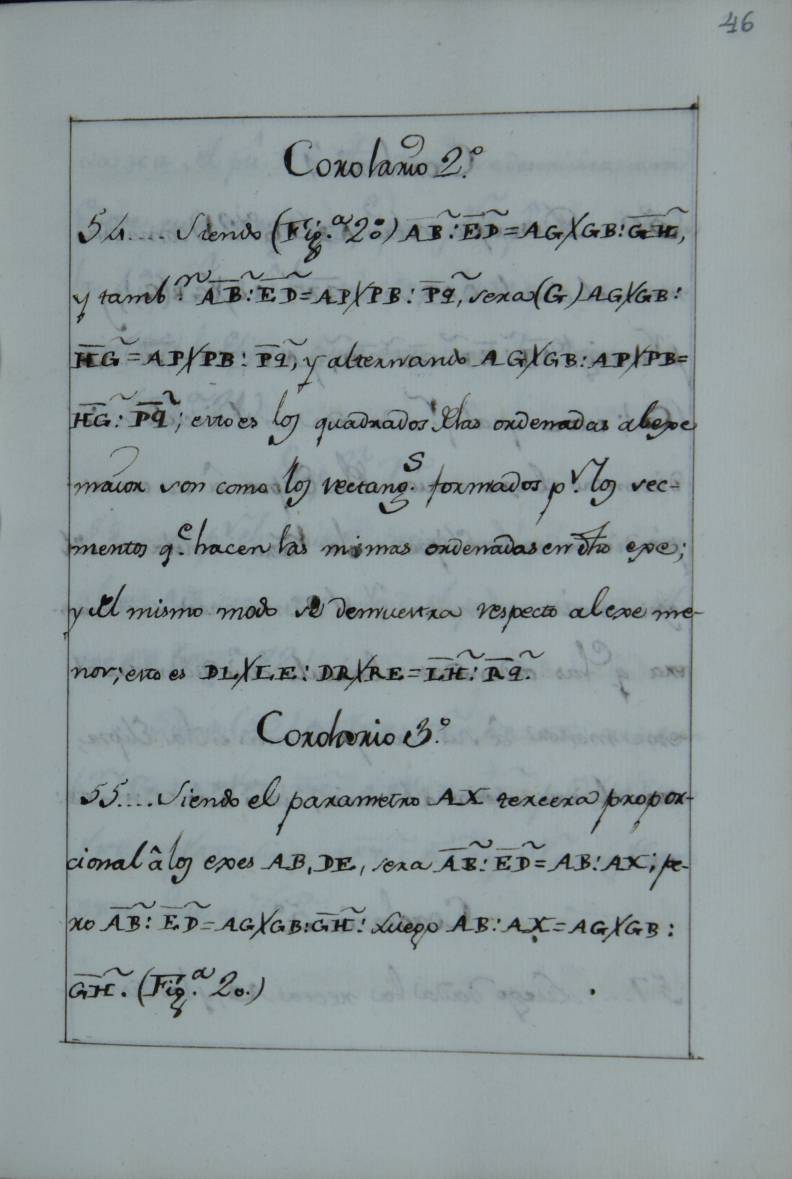 46
Corolario 2.º
54.... Siendo (Fig.ª 20.) A̅B̅²: E̅D̅² = AG×GB: G̅H̅²,
y tamb.ⁿ A̅B̅²: E̅D̅² = AP×PB: P̅q̅², sera (G) AG×GB:
H̅G̅² = AP×PB: P̅q̅², y alternando AG×GB: AP×PB=
H̅G̅²: P̅q̅²; esto es los quadrados de las ordenadas al exe
maior son como los rectang.ˢ formados p.ʳ los sec-
mentos q.ᵉ hacen las mismas ordenadas en dho exe;
y del mismo modo se demuestra respecto al exe me-
nor; esto es DL×LE: DR×RE = L̅H̅²: R̅q̅².
Corolario 3.º
55.... Siendo el parametro AX tercera propor-
cional â los exes AB, DE, sera A̅B̅²: E̅D̅² = AB: AX; pe-
ro A̅B̅²: E̅D̅² = AG×GB: G̅H̅²: Luego AB: AX = AG×GB:
G̅H̅². (Fig.ª 20.)